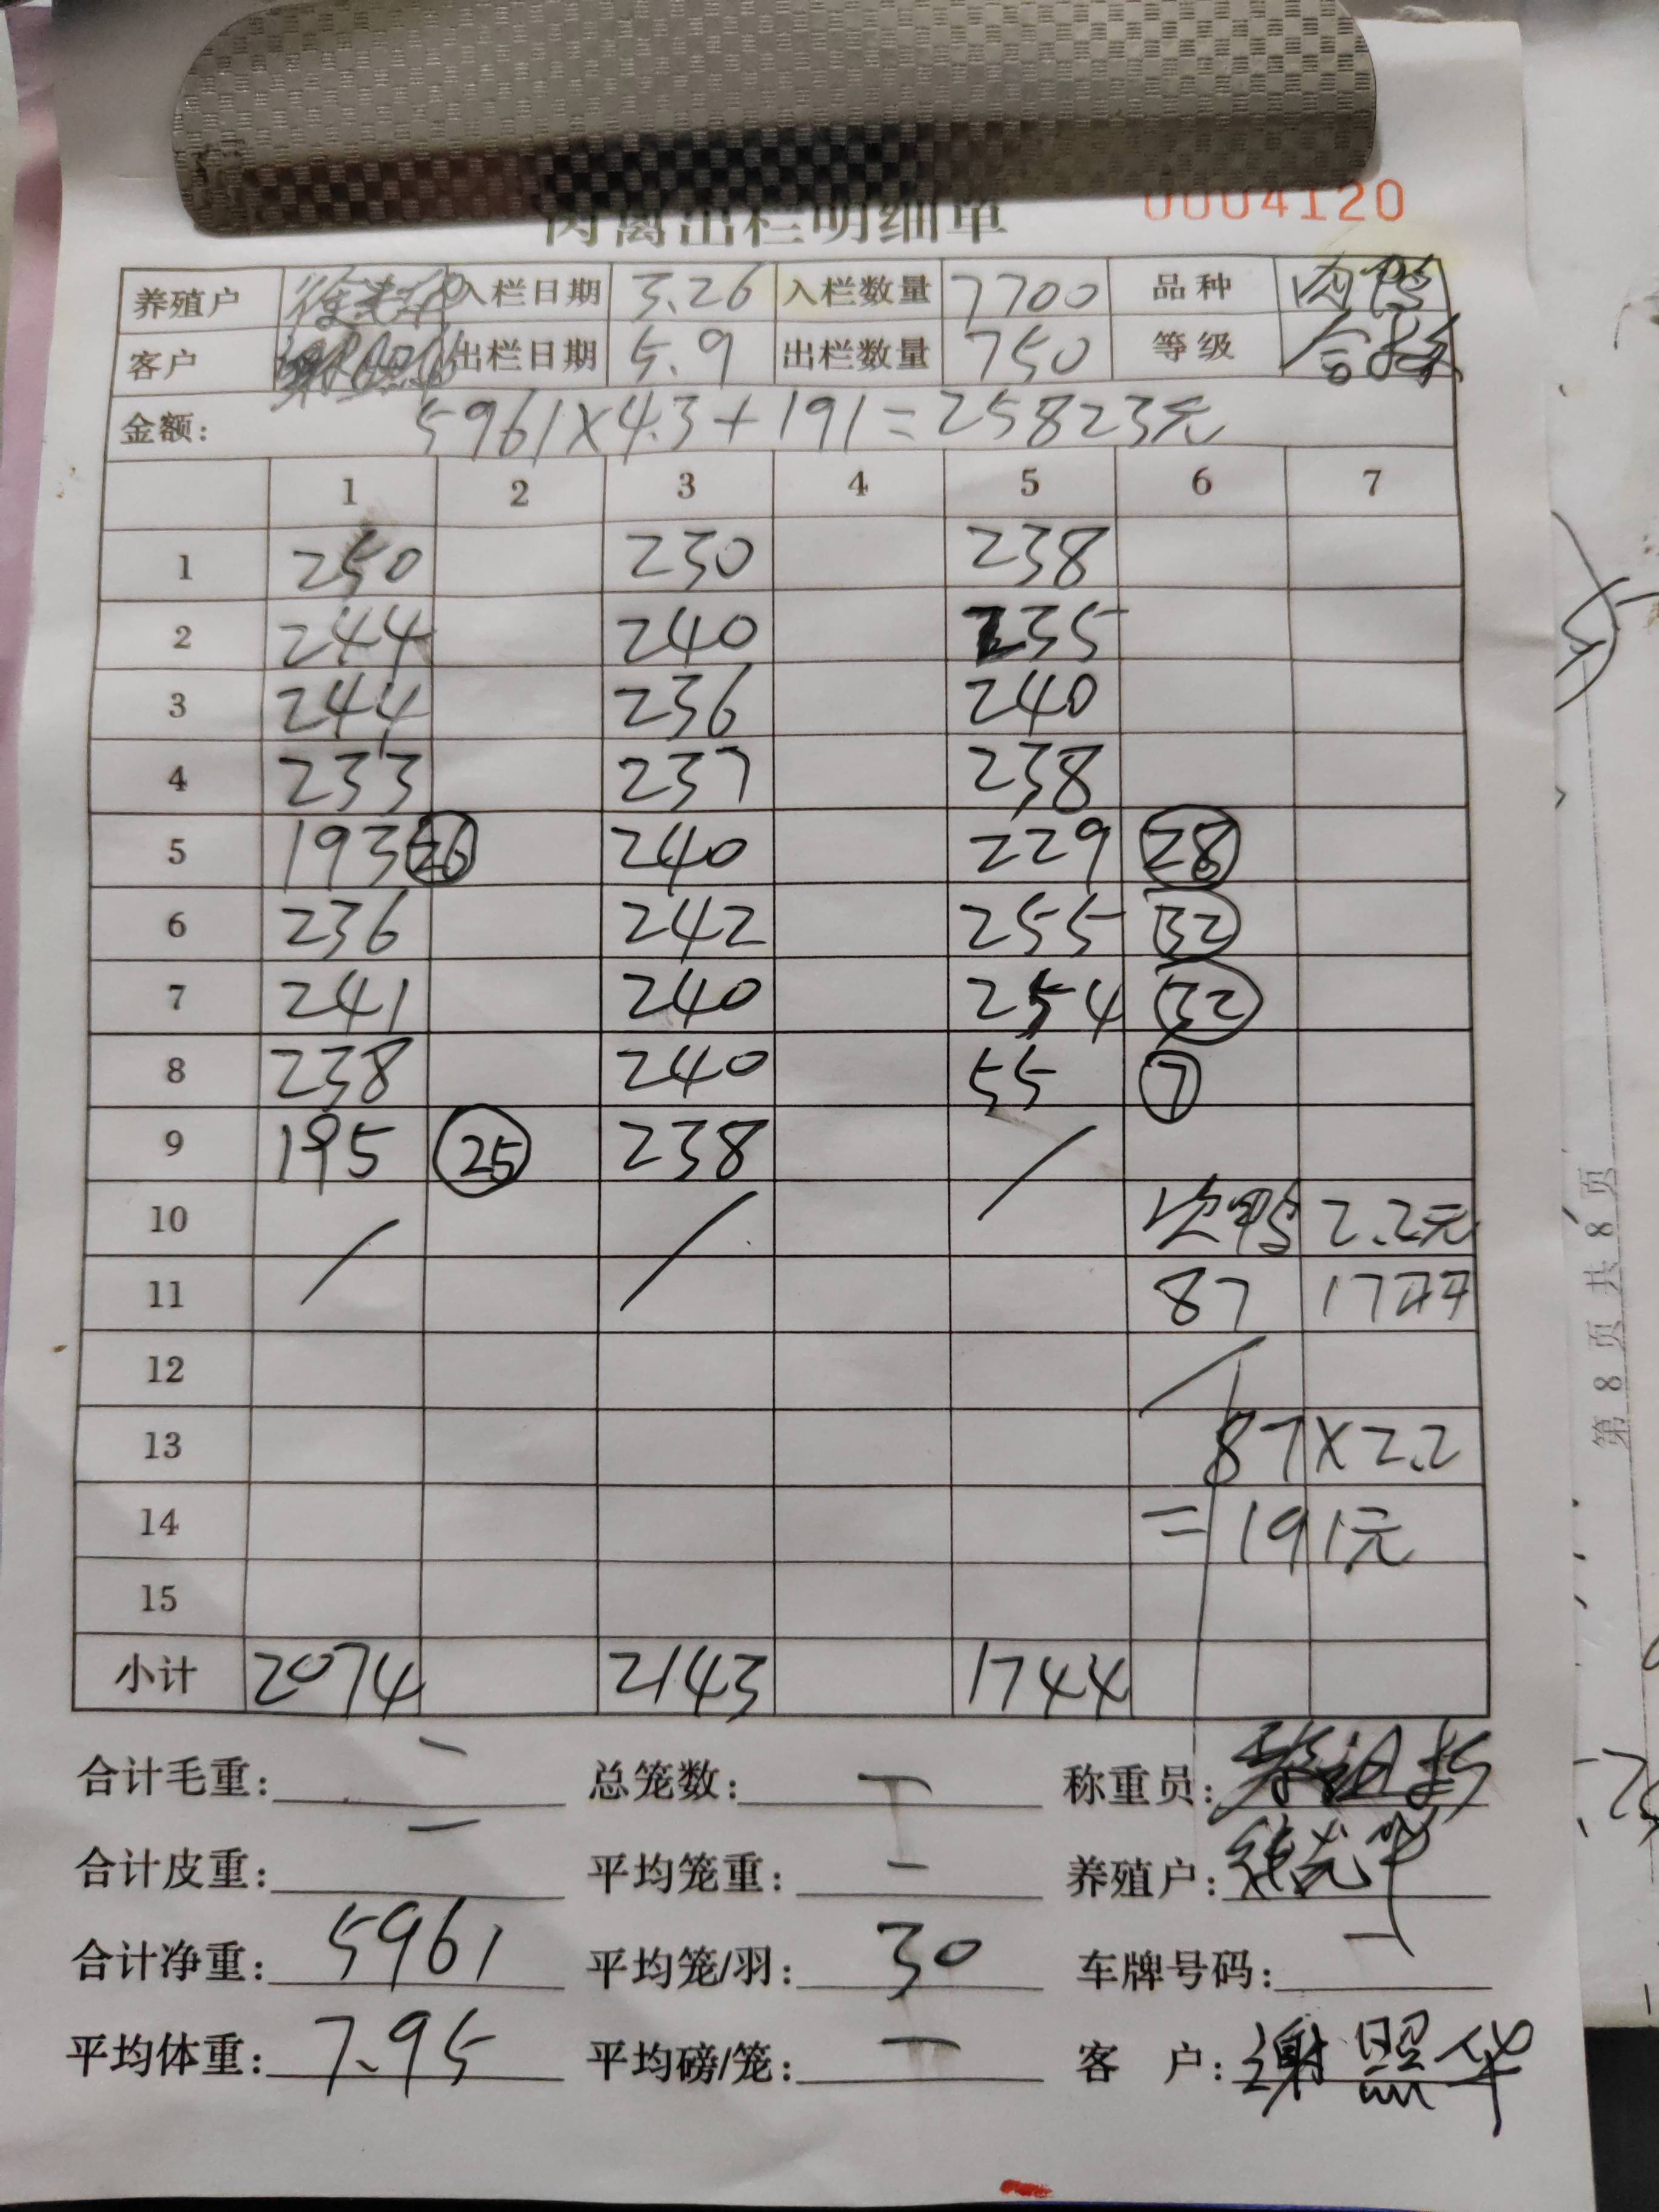 肉禽出栏明细单 0004120
养殖户 入栏日期 3.26 入栏数量 7700 品种 肉鸭
客户 出栏日期 5.9 出栏数量 750 等级 合格
金额: 5961×4.3+191=25823元
1 2 3 4 5 6 7
1 250 230 238
2 244 240 235
3 244 236 240
4 233 237 238
5 193 26 240 229 28
6 236 242 255 32
7 241 240 254 32
8 238 240 55 7
9 195 25 238 /
10 / / 次鸭 2.2元
11 87 17
12 /
13 87×2.2
14 =191元
15
小计 2074 2143 1744
合计毛重: — 总笼数: — 称重员:
合计皮重: — 平均笼重: — 养殖户:
合计净重: 5961 平均笼/羽: 30 车牌号码: —
平均体重: 7.95 平均磅/笼: — 客 户: 谢照华
第 8 页 共 8 页